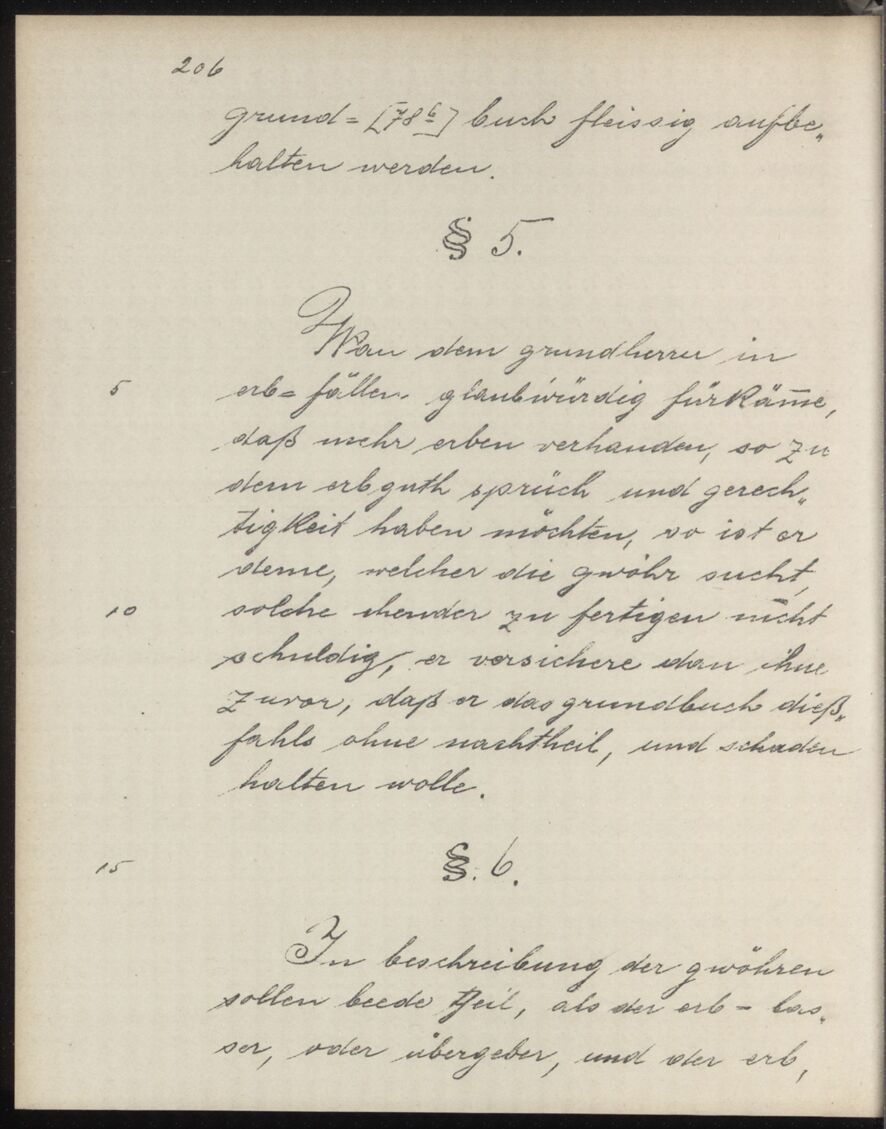 206
grund= [78b] buch fleissig aufbe„
halten werden.
§ 5.
Wan dem grundherrn in
5 erb= fällen glaubwürdig fürkäm̅e,
daß mehr erben verhanden, so zu
dem erbguth sprüch und gerech„
tigkeit haben möchten, so ist er
deme, welcher die gwöhr sucht,
10 solche ehender zu fertigen nicht
schuldig, er versichere dan ihne
zuvor, daß er das grundbuch dieß„
fahls ohne nachtheil, und schaden
halten wolle.
15 §. 6.
In beschreibung der gwöhren
sollen beede theil, als der erb= las„
ser, oder übergeber, und der erb,